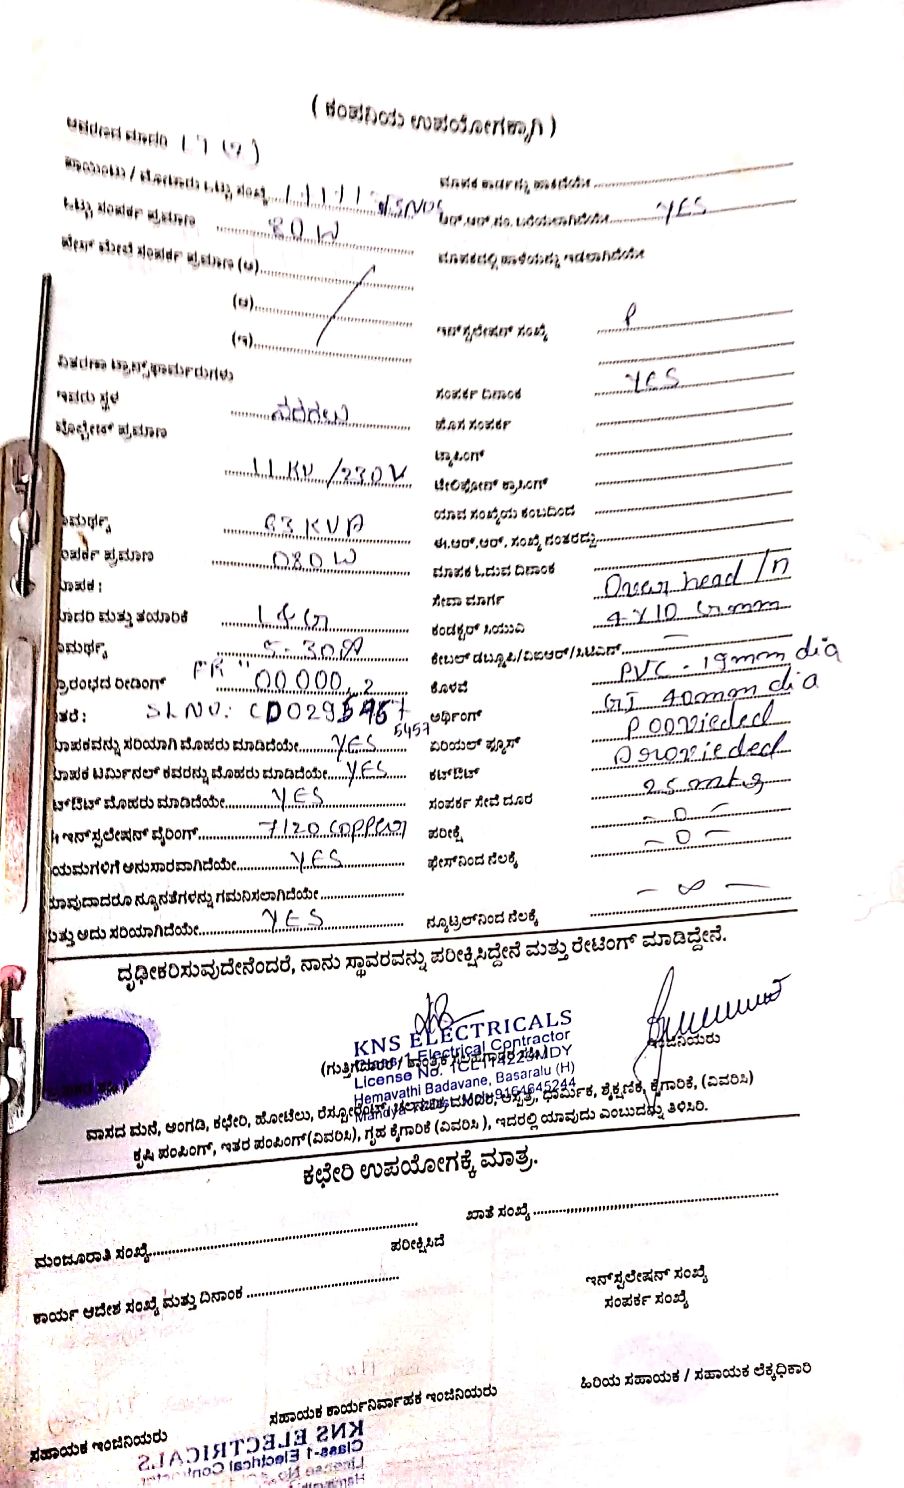 ( ಕಂಪನಿಯ ಉಪಯೋಗಕ್ಕಾಗಿ )
ಮಾಪಕ ಕಾರ್ಡನ್ನು ಹಾಕಿದೆಯೇ
ಆರ್.ಆರ್ ನಂ. ಬರೆಯಲಾಗಿದೆಯೇ YES
ಒಟ್ಟು ಸಂಪರ್ಕ ಪ್ರಮಾಣ 80W
ಮೇಲೆ ಸಂಪರ್ಕ ಪ್ರಮಾಣ (ಅ)
(ಆ)
(ಇ)
ಇನ್‌ಸ್ಟಲೇಷನ್ ಸಂಖ್ಯೆ P
ವಿತರಣಾ ಟ್ರಾನ್ಸ್‌ಫಾರ್ಮರುಗಳು
ಇವರು ಸ್ಥಳ
ಸಂಪರ್ಕ ದಿನಾಂಕ YES
ವೋಲ್ಟೇಜ್ ಪ್ರಮಾಣ 11 KV /230V
ಹೊಸ ಸಂಪರ್ಕ
ಟ್ಯಾಪಿಂಗ್
ಟೆಲಿಫೋನ್ ಕ್ರಾಸಿಂಗ್
ಾಮರ್ಥ್ಯ 63 KVA
ಯಾವ ಸಂಖ್ಯೆಯ ಕಂಬದಿಂದ
ಂಪರ್ಕ ಪ್ರಮಾಣ 080W
ಈ.ಆರ್.ಆರ್. ಸಂಖ್ಯೆ ನಂತರದ್ದು
ಾಪಕ :
ಮಾಪಕ ಓದುವ ದಿನಾಂಕ
ಸೇವಾ ಮಾರ್ಗ Over head /n
ಾದರಿ ಮತ್ತು ತಯಾರಿಕೆ L&G
ಕಂಡಕ್ಟರ್ ಸಿಯುವಿ 4 X 10
ಾಮರ್ಥ್ಯ 5-30A
ಕೇಬಲ್ ಡಬ್ಲ್ಯೂಪಿ/ವಿಐಆರ್/ಸಿಟಿಎಸ್ —
್ರಾರಂಭದ ರೀಡಿಂಗ್ FR " 00000.2
ಕೊಳವೆ PVC - 19mm dia
ತರೆ : SL NO:
5457
ಅರ್ಥಿಂಗ್ GI 40mm dia
ಾಪಕವನ್ನು ಸರಿಯಾಗಿ ಮೊಹರು ಮಾಡಿದೆಯೇ YES
ಏರಿಯಲ್ ಫ್ಯೂಸ್ Poovieded
ಾಪಕ ಟರ್ಮಿನಲ್ ಕವರನ್ನು ಮೊಹರು ಮಾಡಿದೆಯೇ YES
ಕಟ್‌ಔಟ್ Proovieded
ಟ್‌ಔಟ್ ಮೊಹರು ಮಾಡಿದೆಯೇ YES
ಸಂಪರ್ಕ ಸೇವೆ ದೂರ 25 mtg
ಇನ್‌ಸ್ಟಲೇಷನ್ ವೈರಿಂಗ್ 7/20 copper
ಪರೀಕ್ಷೆ — 0 —
ಯಮಗಳಿಗೆ ಅನುಸಾರವಾಗಿದೆಯೇ YES
ಫೇಸ್‌ನಿಂದ ನೆಲಕ್ಕೆ — 0 —
ಾವುದಾದರೂ ನ್ಯೂನತೆಗಳನ್ನು ಗಮನಿಸಲಾಗಿದೆಯೇ
ುತ್ತು ಅದು ಸರಿಯಾಗಿದೆಯೇ YES
ನ್ಯೂಟ್ರಲ್‌ನಿಂದ ನೆಲಕ್ಕೆ — ∞ —
ದೃಢೀಕರಿಸುವುದೇನೆಂದರೆ, ನಾನು ಸ್ಥಾವರವನ್ನು ಪರೀಕ್ಷಿಸಿದ್ದೇನೆ ಮತ್ತು ರೇಟಿಂಗ್ ಮಾಡಿದ್ದೇನೆ.
KNS ELECTRICALS
Class-1 Electrical Contractor
License No. 1CL114223MDY
Hemavathi Badavane, Basaralu (H)
9164645244
ಇಂಜಿನಿಯರು
ವಾಸದ ಮನೆ, ಅಂಗಡಿ, ಕಛೇರಿ, ಹೋಟೆಲು, ರೆಸ್ಟೋರೆಂಟ್, ಆಸ್ಪತ್ರೆ, ಧಾರ್ಮಿಕ, ಶೈಕ್ಷಣಿಕ, ಕೈಗಾರಿಕೆ, (ವಿವರಿಸಿ)
ಕೃಷಿ ಪಂಪಿಂಗ್, ಇತರ ಪಂಪಿಂಗ್(ವಿವರಿಸಿ), ಗೃಹ ಕೈಗಾರಿಕೆ (ವಿವರಿಸಿ ), ಇದರಲ್ಲಿ ಯಾವುದು ಎಂಬುದನ್ನು ತಿಳಿಸಿರಿ.
ಕಛೇರಿ ಉಪಯೋಗಕ್ಕೆ ಮಾತ್ರ.
ಮಂಜೂರಾತಿ ಸಂಖ್ಯೆ
ಖಾತೆ ಸಂಖ್ಯೆ
ಪರೀಕ್ಷಿಸಿದೆ
ಕಾರ್ಯ ಆದೇಶ ಸಂಖ್ಯೆ ಮತ್ತು ದಿನಾಂಕ
ಇನ್‌ಸ್ಟಲೇಷನ್ ಸಂಖ್ಯೆ
ಸಂಪರ್ಕ ಸಂಖ್ಯೆ
ಸಹಾಯಕ ಇಂಜಿನಿಯರು
ಸಹಾಯಕ ಕಾರ್ಯನಿರ್ವಾಹಕ ಇಂಜಿನಿಯರು
ಹಿರಿಯ ಸಹಾಯಕ / ಸಹಾಯಕ ಲೆಕ್ಕಧಿಕಾರಿ
KNS ELECTRICALS
Class-1 Electrical